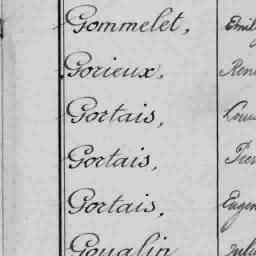 Gommelet, Emil
Gorieux, René
Gortais, Loui
Gortais, Pier
Gortais, Eugen
Goualin